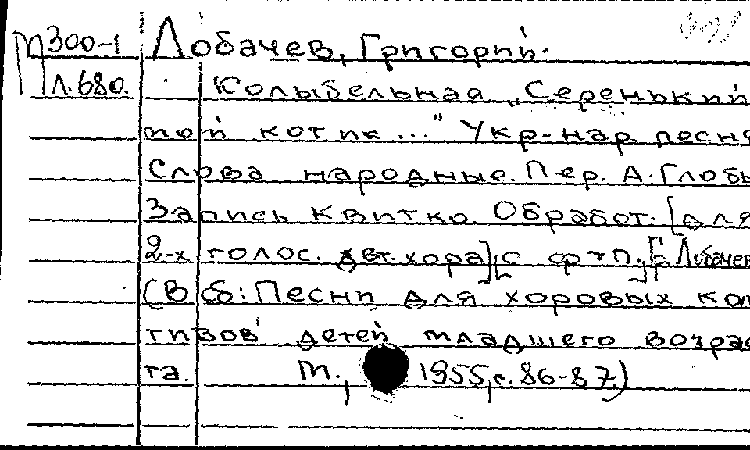 М 300-1 Лобачев, Григорий.
Л.680. Колыбельная „Серенький
мой котик..." Укр-нар песня
Слова народные. Пер. А. Глобы
Запись Квитко. Обработ. [для
2-х голос. дет. хора] [с ф-тп.] [Г. Лобачев
(В сб: Песни для хоровых кол
тивов детей младшего возрас
та. М., 1955, с. 86-87)